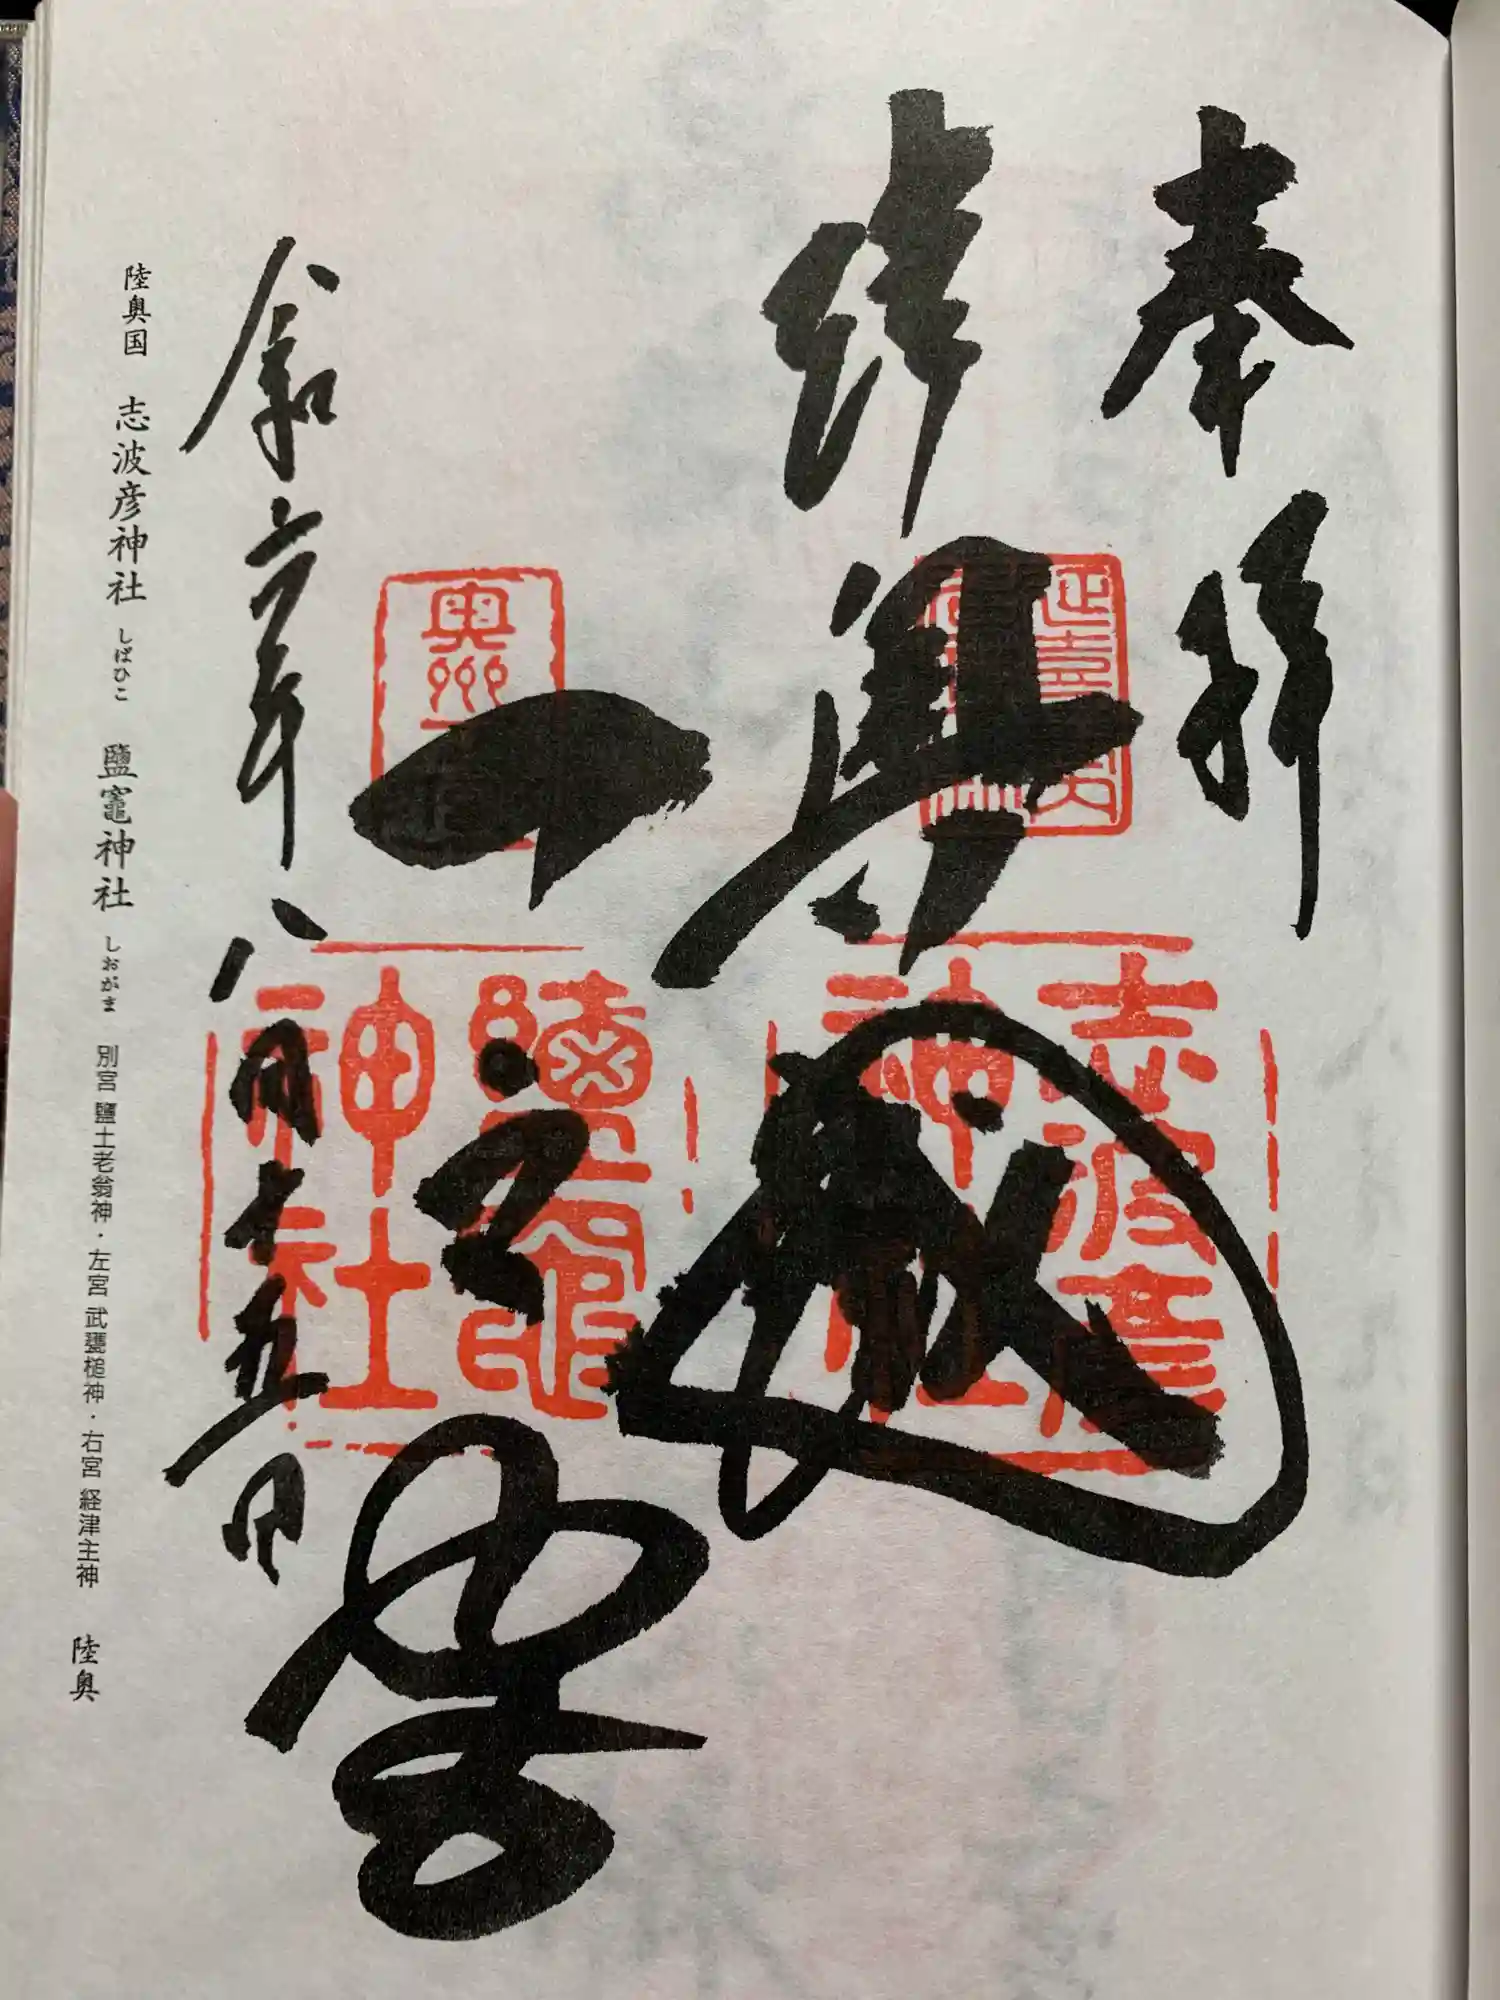 奉拝
陸奥國
志波彦神社
一之宮
鹽竈神社
令和六年八月十五日
陸奥国 志波彦神社 しばひこ 鹽竈神社 しおがま 別宮 鹽土老翁神・左宮 武甕槌神・右宮 経津主神 陸奥